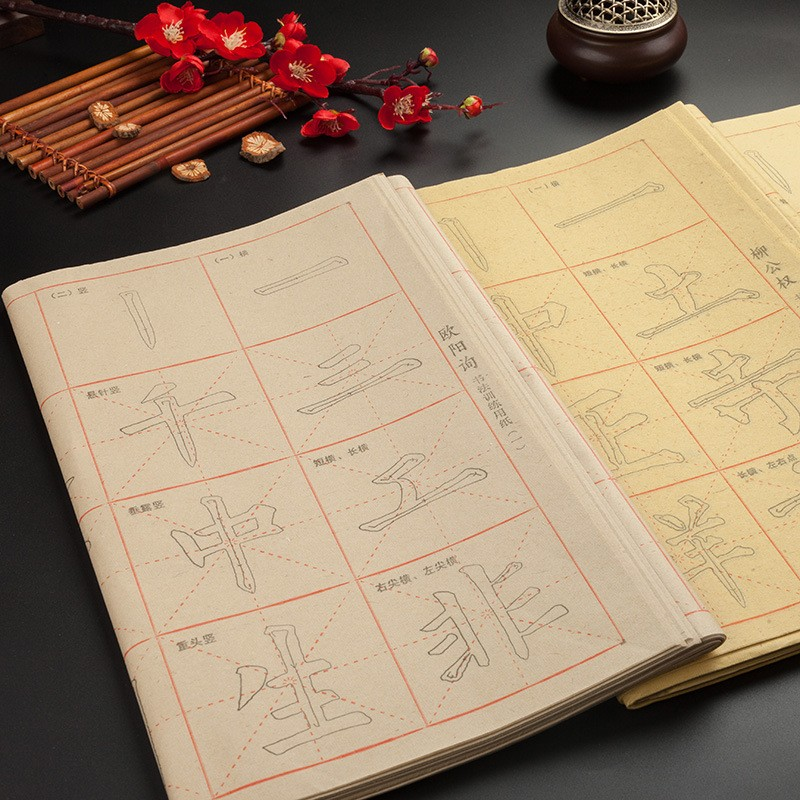 欧阳询 书法训练用纸（一）
（一）横
一
三
短横、长横
工
右尖横、左尖横
非
（二）竖
丨
悬针竖
千
垂露竖
中
重头竖
生
柳公权
（一）横
一
短横、长横
土
短横、长横
长横、左右点
羊